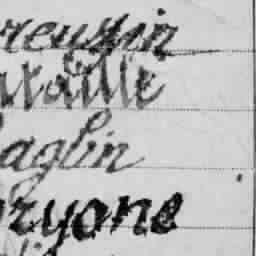 reuzin
ataille
aglin
ryone